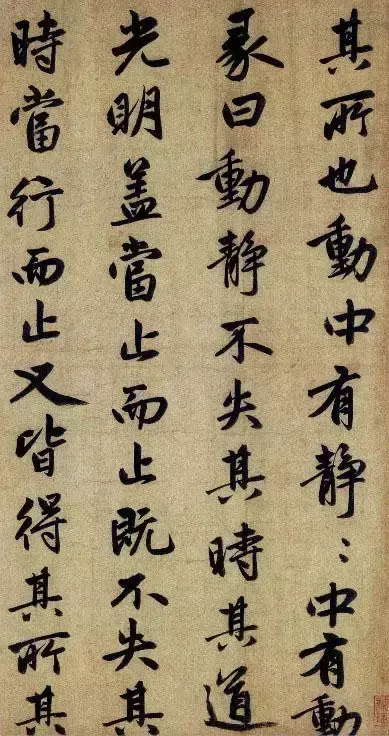 其所也動中有靜〻中有動
彖曰動靜不失其時其道
光明蓋當止而止既不失其
時當行而止又皆得其所其